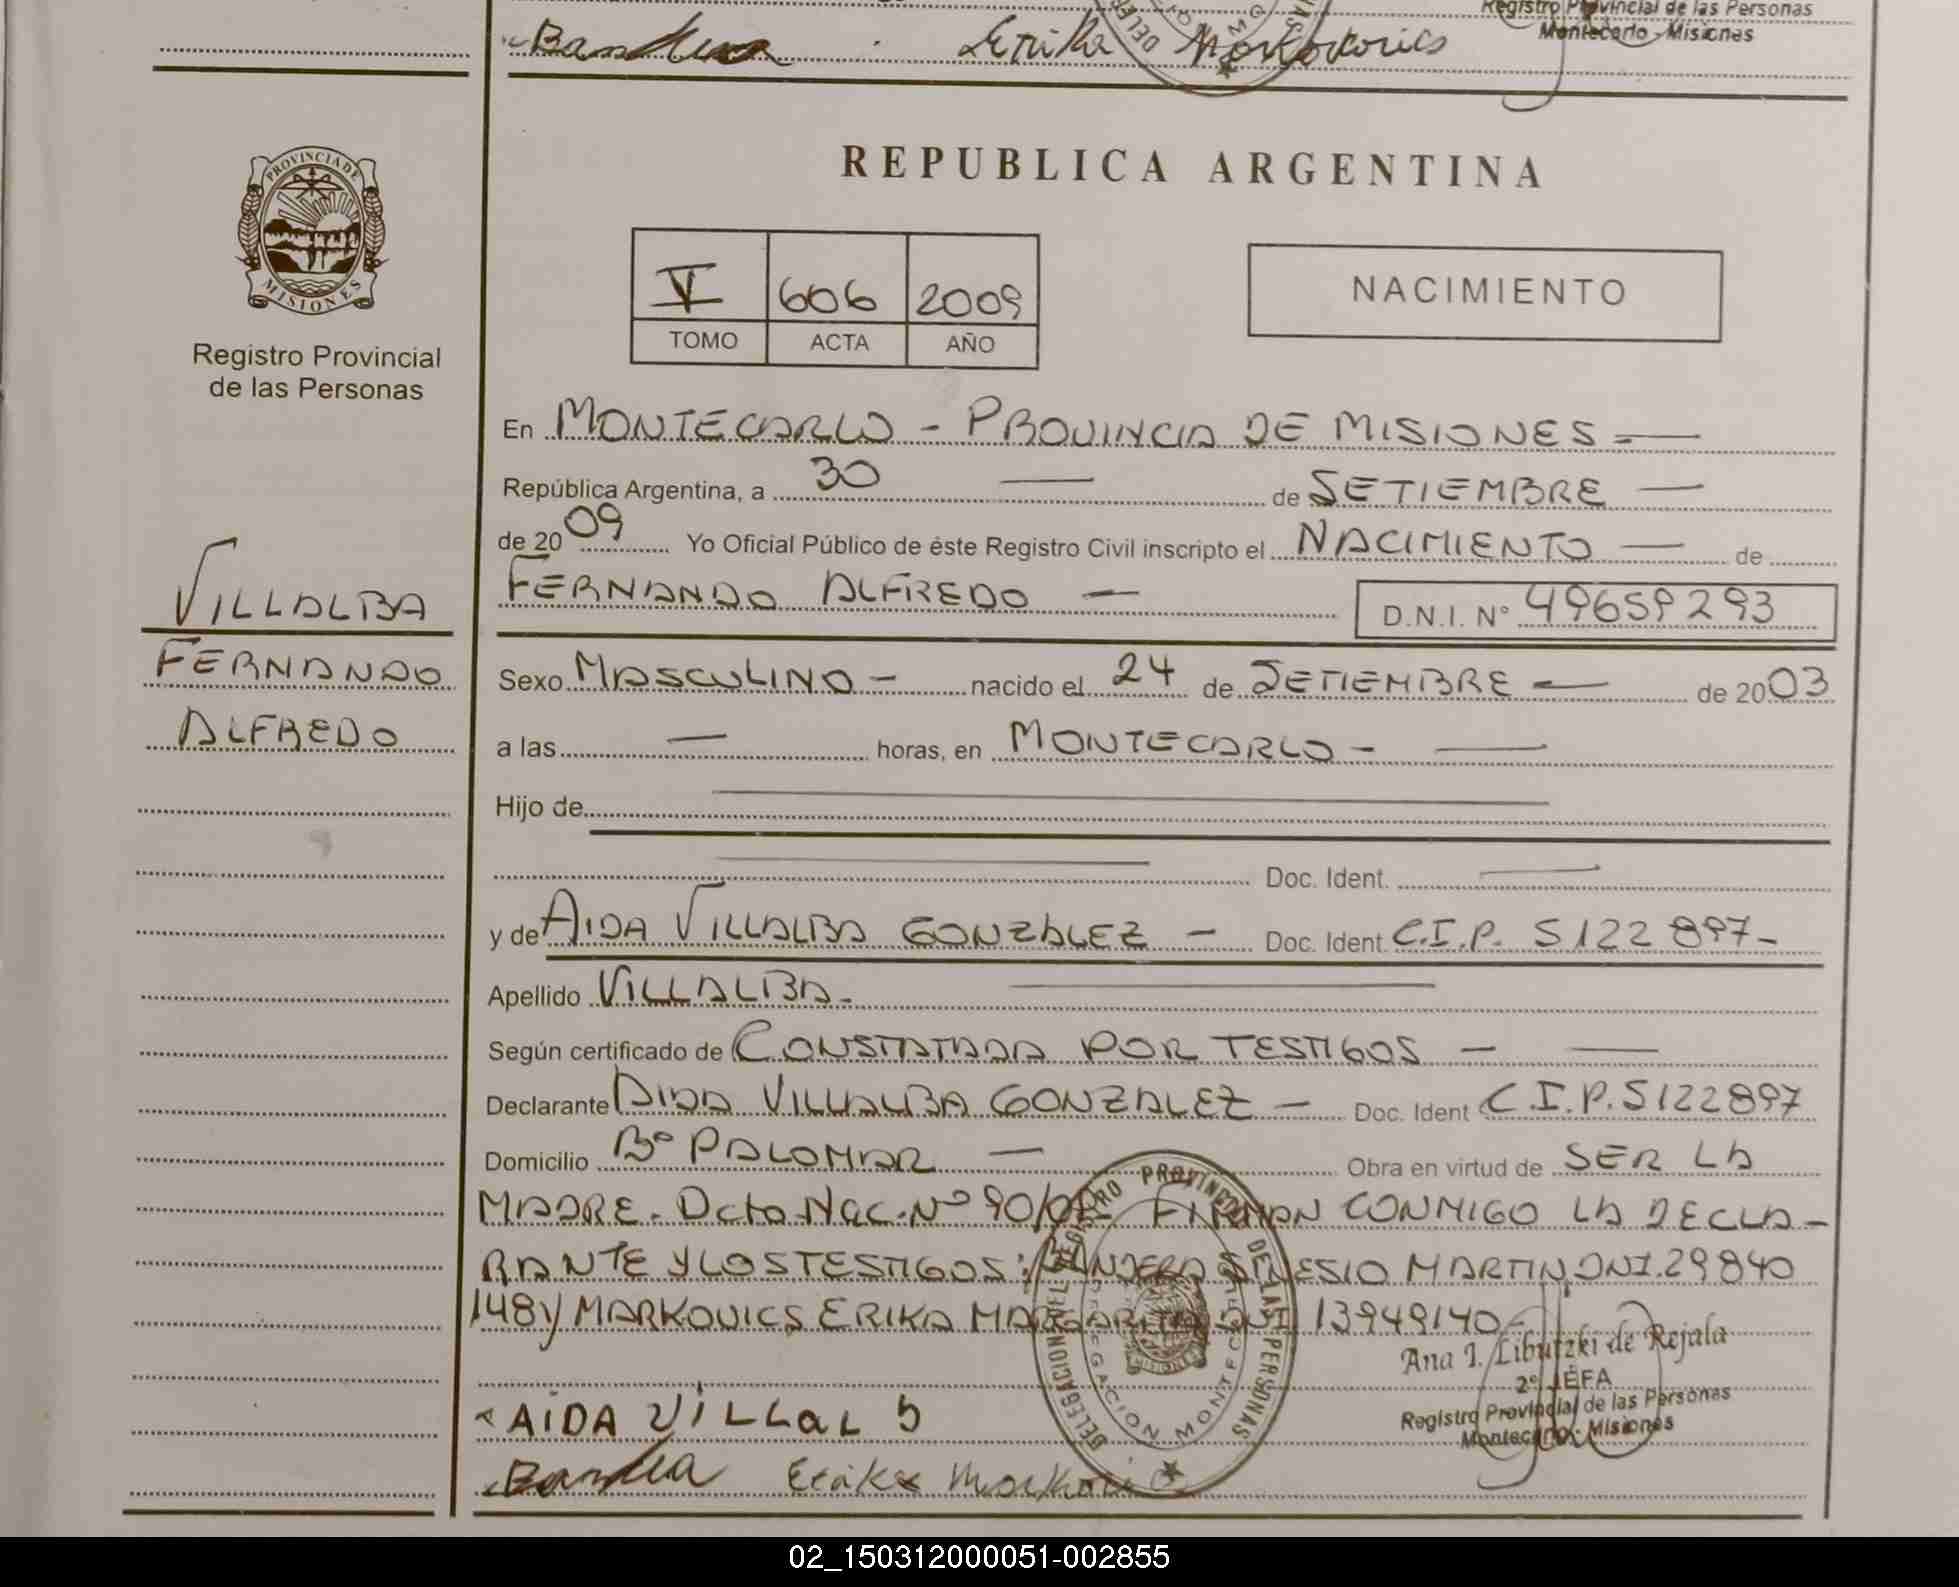 Registro Provincial de las Personas
Montecarlo - Misiones
Bandera Erika Markovics
PROVINCIA DE
MISIONES
Registro Provincial
de las Personas
REPUBLICA ARGENTINA
V 606 2009
TOMO ACTA AÑO
NACIMIENTO
En MONTECARLO - PROVINCIA DE MISIONES =
República Argentina, a 30 de SETIEMBRE
de 2009 Yo Oficial Público de éste Registro Civil inscripto el NACIMIENTO de
FERNANDO ALFREDO D.N.I. Nº 49659293
VILLALBA
FERNANDO
ALFREDO
Sexo MASCULINO - nacido el 24 de SETIEMBRE de 2003
a las — horas, en MONTECARLO -
Hijo de
Doc. Ident.
y de AIDA VILLALBA GONZALEZ - Doc. Ident. C.I.P. 5122897-
Apellido VILLALBA.
Según certificado de CONSTATADA POR TESTIGOS -
Declarante AIDA VILLALBA GONZALEZ - Doc. Ident C.I.P. 5122897
Domicilio Bº PALOMAR Obra en virtud de SER LA
MADRE. Dcto Nac. Nº 90/09 FIRMAN CONMIGO LA DECLA-
RANTE Y LOS TESTIGOS: BANDERA SINESIO MARTIN DNI. 29840
148 y MARKOVICS ERIKA MARGARITA DNI 13949140-
Ana I. Libutzki de Rejala
2º JEFA
Registro Provincial de las Personas
Montecarlo - Misiones
AIDA VILLAL b
Bandera Erika Markovics
DELEGACION DEL REGISTRO PROVINCIAL DE LAS PERSONAS
DELEGACION MONTECARLO
MISIONES
02_150312000051-002855